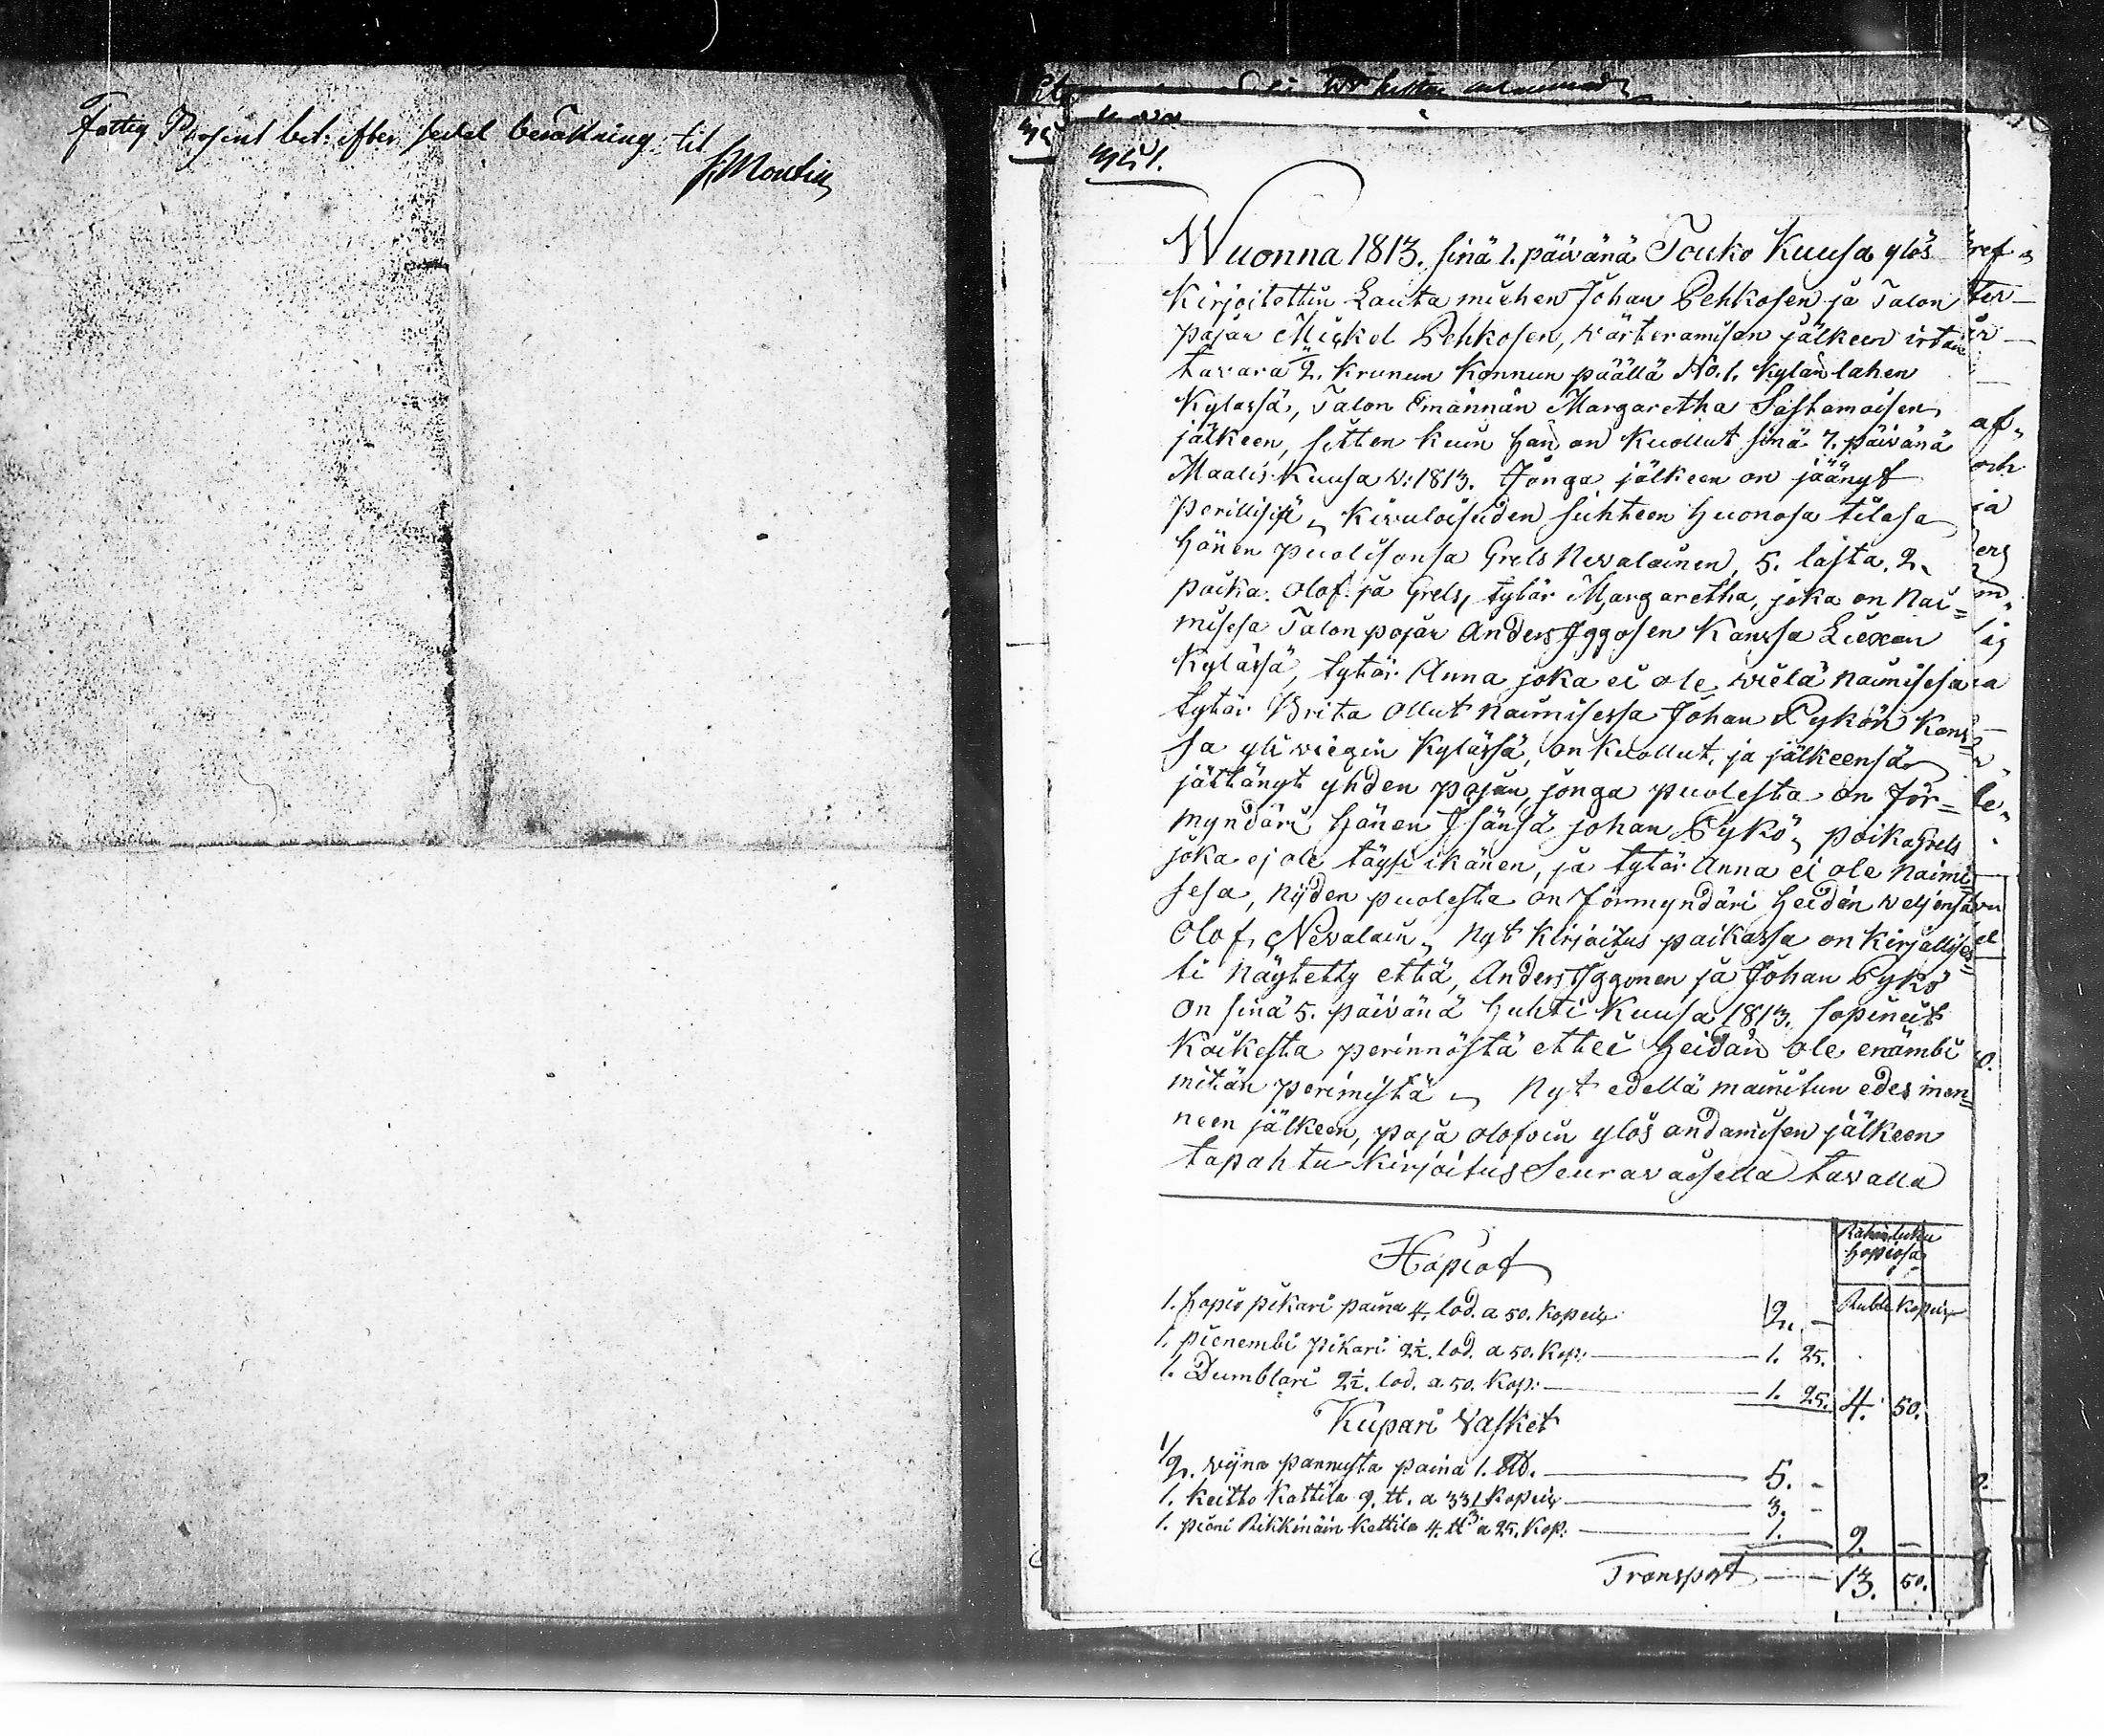 Fattig Prosent bet: efter sedel beräkning til
Wuonna 1813. sinä 1. päivänä Touko Kuusa ylös
Kirjoitettin Lauta miehen Johan Pehkosen ja Talon
pojan Mickel Pehkosen, värteramisen jälkeen irtain
tavara 2. krunun Konnun päällä No. 1. Kylän lahen
Kylässä, Talon Emännän Margaretha Sastamoisen
jälkeen, sitten kuin hän on Kuollut sinä 7. päivänä
Maalis Kuusa v: 1813. Jonga jälkeen on jäänyt
perillisiä, kivuloisuden suhteen huonosa tilasa
hänen puolisonsa Grels Nevalainen, 5. lasta. 2.
poika. Olof. ja Grels, tytär Margaretha, joka on Nai=
misesa Talon pojan Anders Iggosen Kanssa Liexan
Kylässä, tytär Anna joka ei ole vielä naimisesa
tytär Brita ollut naimisessa Johan Pykön Kans=
sa yli viegin Kylässä, on kuollut, ja jälkeensä
jättänyt yhden pojan, jonga puolesta on för=
myndäri hänen Isänsä johan Pykö, poika Grels
joka ej ole täysi ikänen, ja tytär Anna ei ole naimi=
sesa, nijden puolesta on förmyndäri heidän veljensä
Olof Nevalain, Nyt kirjoitus paikassa on kirjallises=
ti näytetty että, Anders Iggonen ja Johan Pykö
on sinä 5. päivänä huhti Kuusa 1813. sopineet
Kaikesta perinnöstä ettei heidän ole enämbi
mitän perimistä, Nyt edellä mainitun edes men=
neen jälkeen, poja olofvin ylös andamisen jälkeen
tapahtu Kirjoitus Seuravaisella tavalla
Rahan luku
hopiosa
Hopiat
Rubl. Kopeix
1. hopio pikari paina 4. lod. a 50. kopeix 2. -
1. pienembi pikari 2½. lod. a 50. Kop: 1. 25.
1. Dumblari 2½. lod. a 50. Kop: 1. 25. 4. 50.
Kupari Vasket
1/2. vijna pannusta paina 1. 5. -
1. keitto kattila 9. tt. a 33⅓ kopeix 3. -
1. pieni Rikkinäin kattila 4. tt a 25. Kop. 1. 9. -
Transport 13. 50.